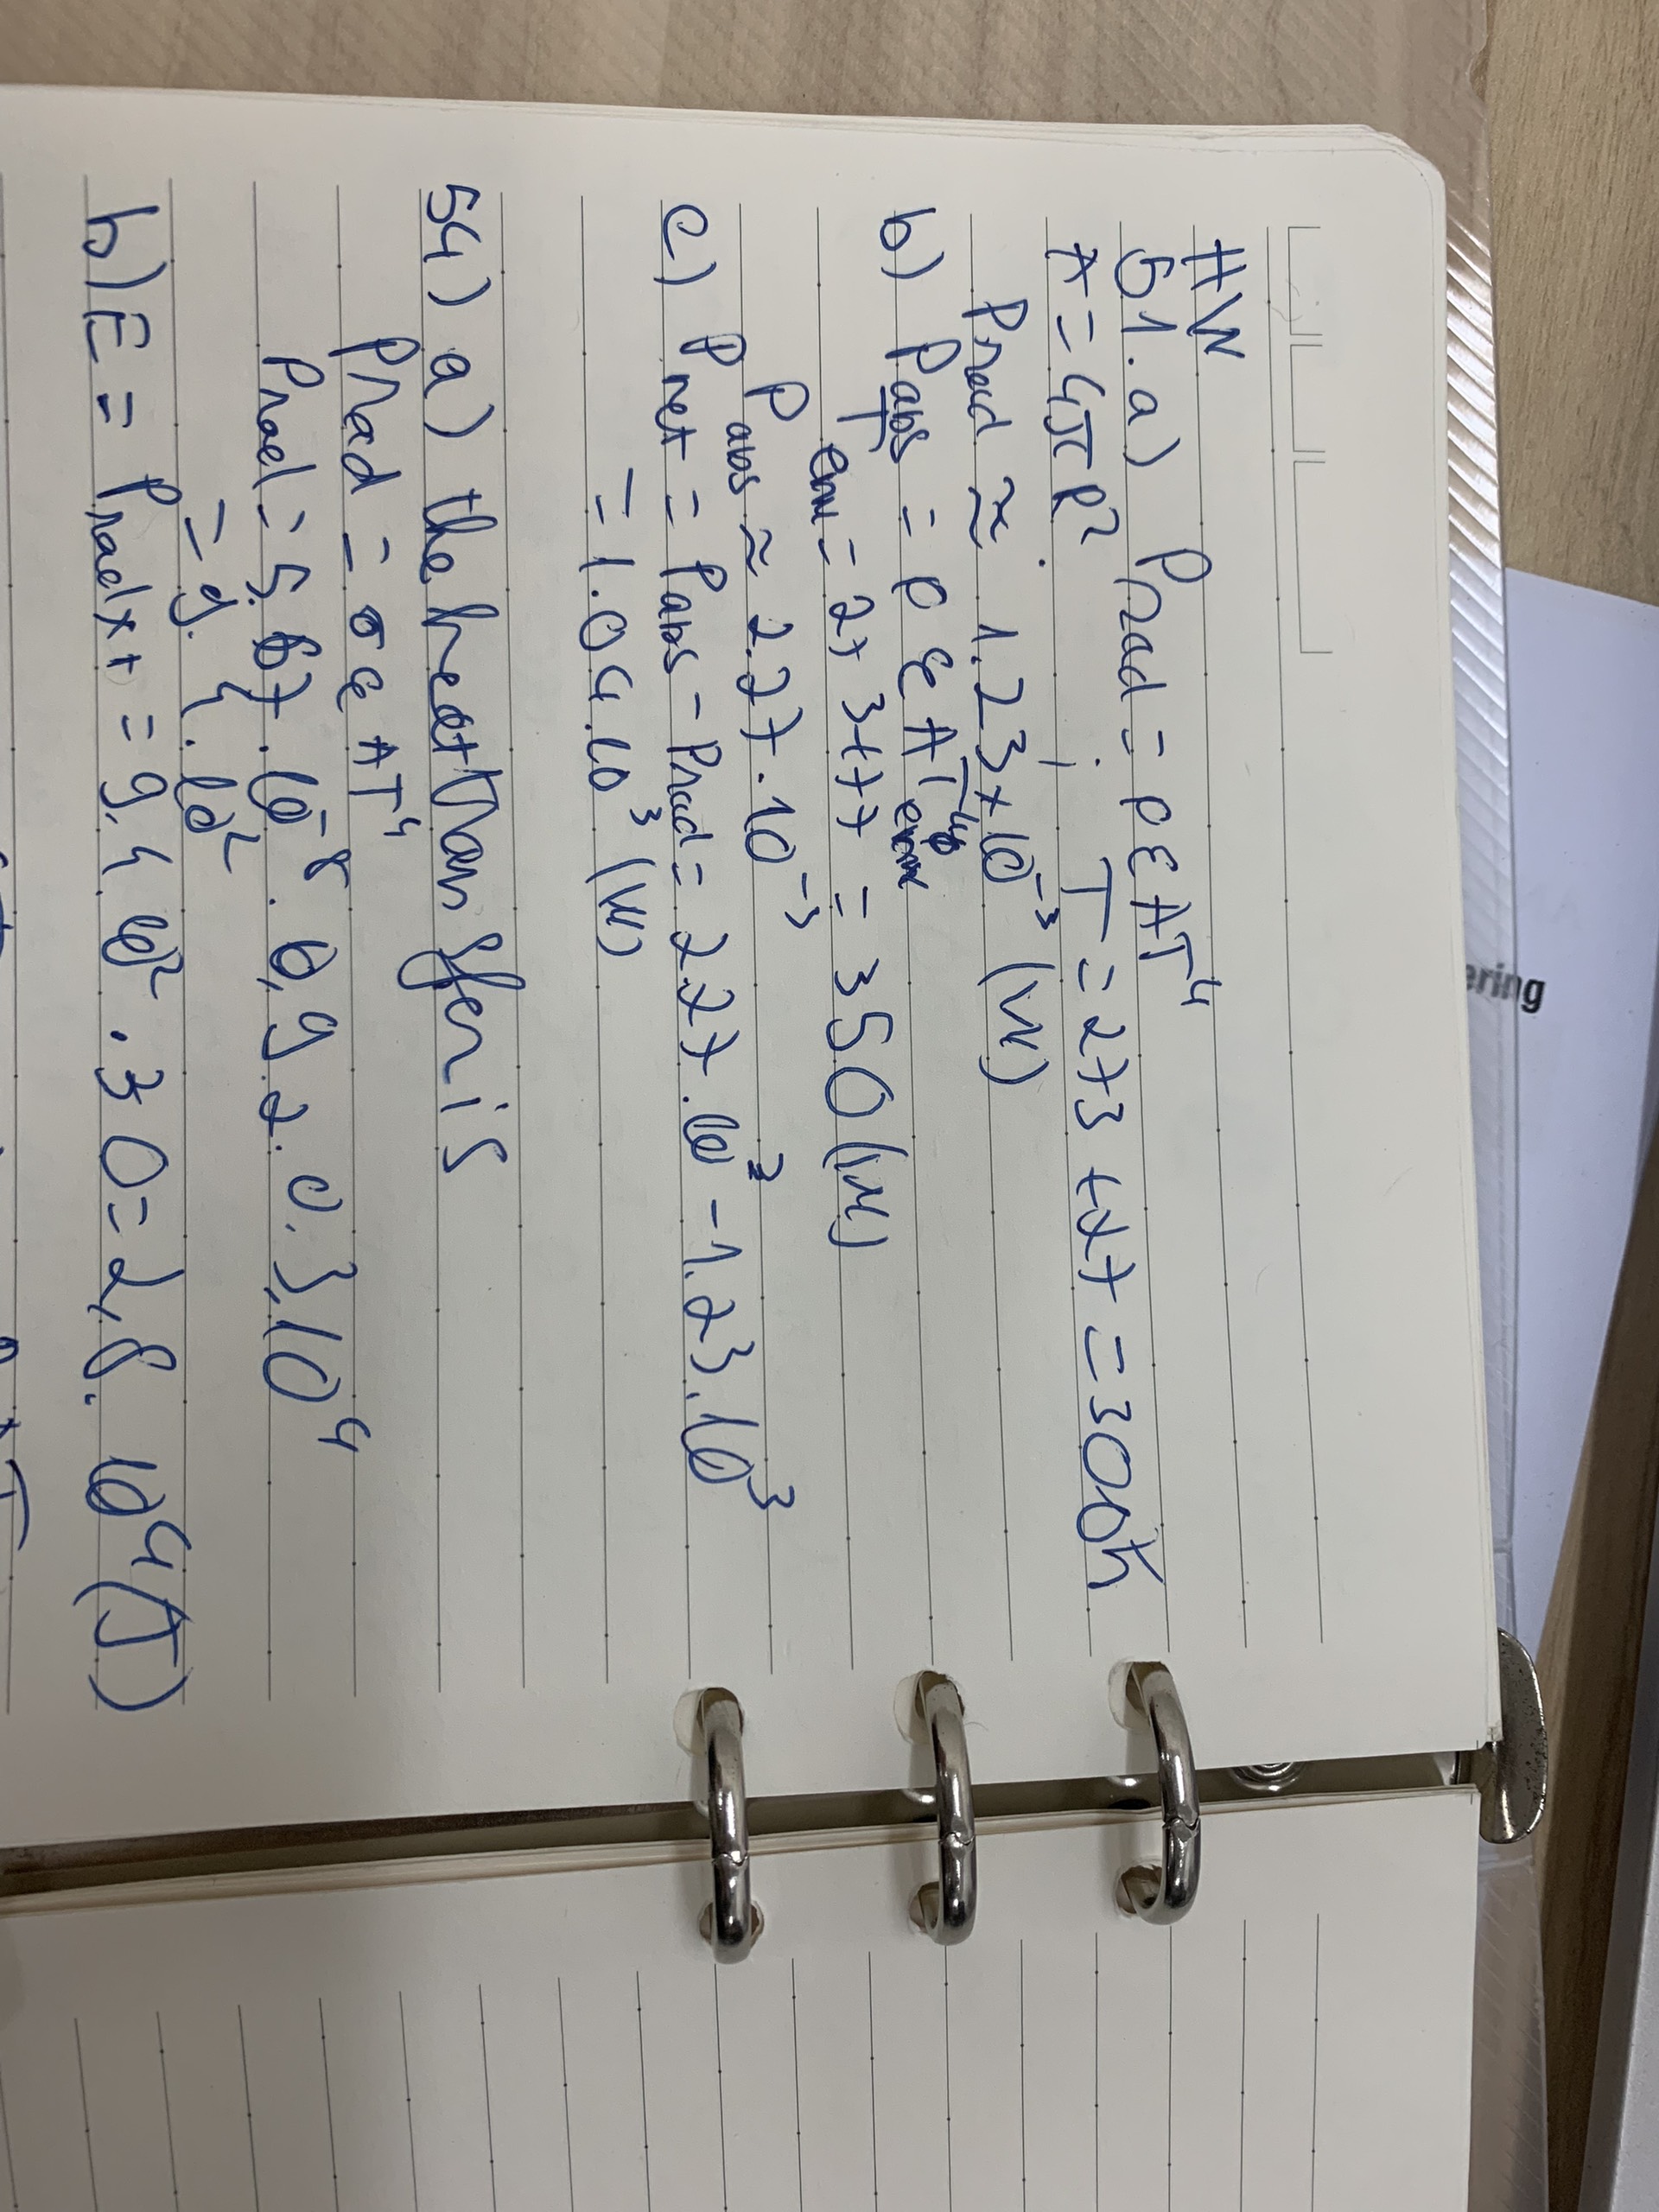 HW
51. a) Prad = ρεAT⁴
A = 4πR² ; T = 273 + 27 = 300K
Prad ≈ 1.23×10⁻³ (W)
b) Pabs = ρεAT⁴env
Tenv = 273+77 = 350 (K)
Pabs ≈ 2.27.10⁻³
c) Pnet = Pabs - Prad = 2.27.10³ - 1.23.10³
= 1.04.10³ (W)
54) a) the heat transfer is
Prad = σεAT⁴
Prad = 5.67.10⁻⁸. 6,9.2.0.3,10⁴
= 9.4.10²
b) E = Prad×t = 9,4.10².30 = 2,8.10⁴ (J)
ering